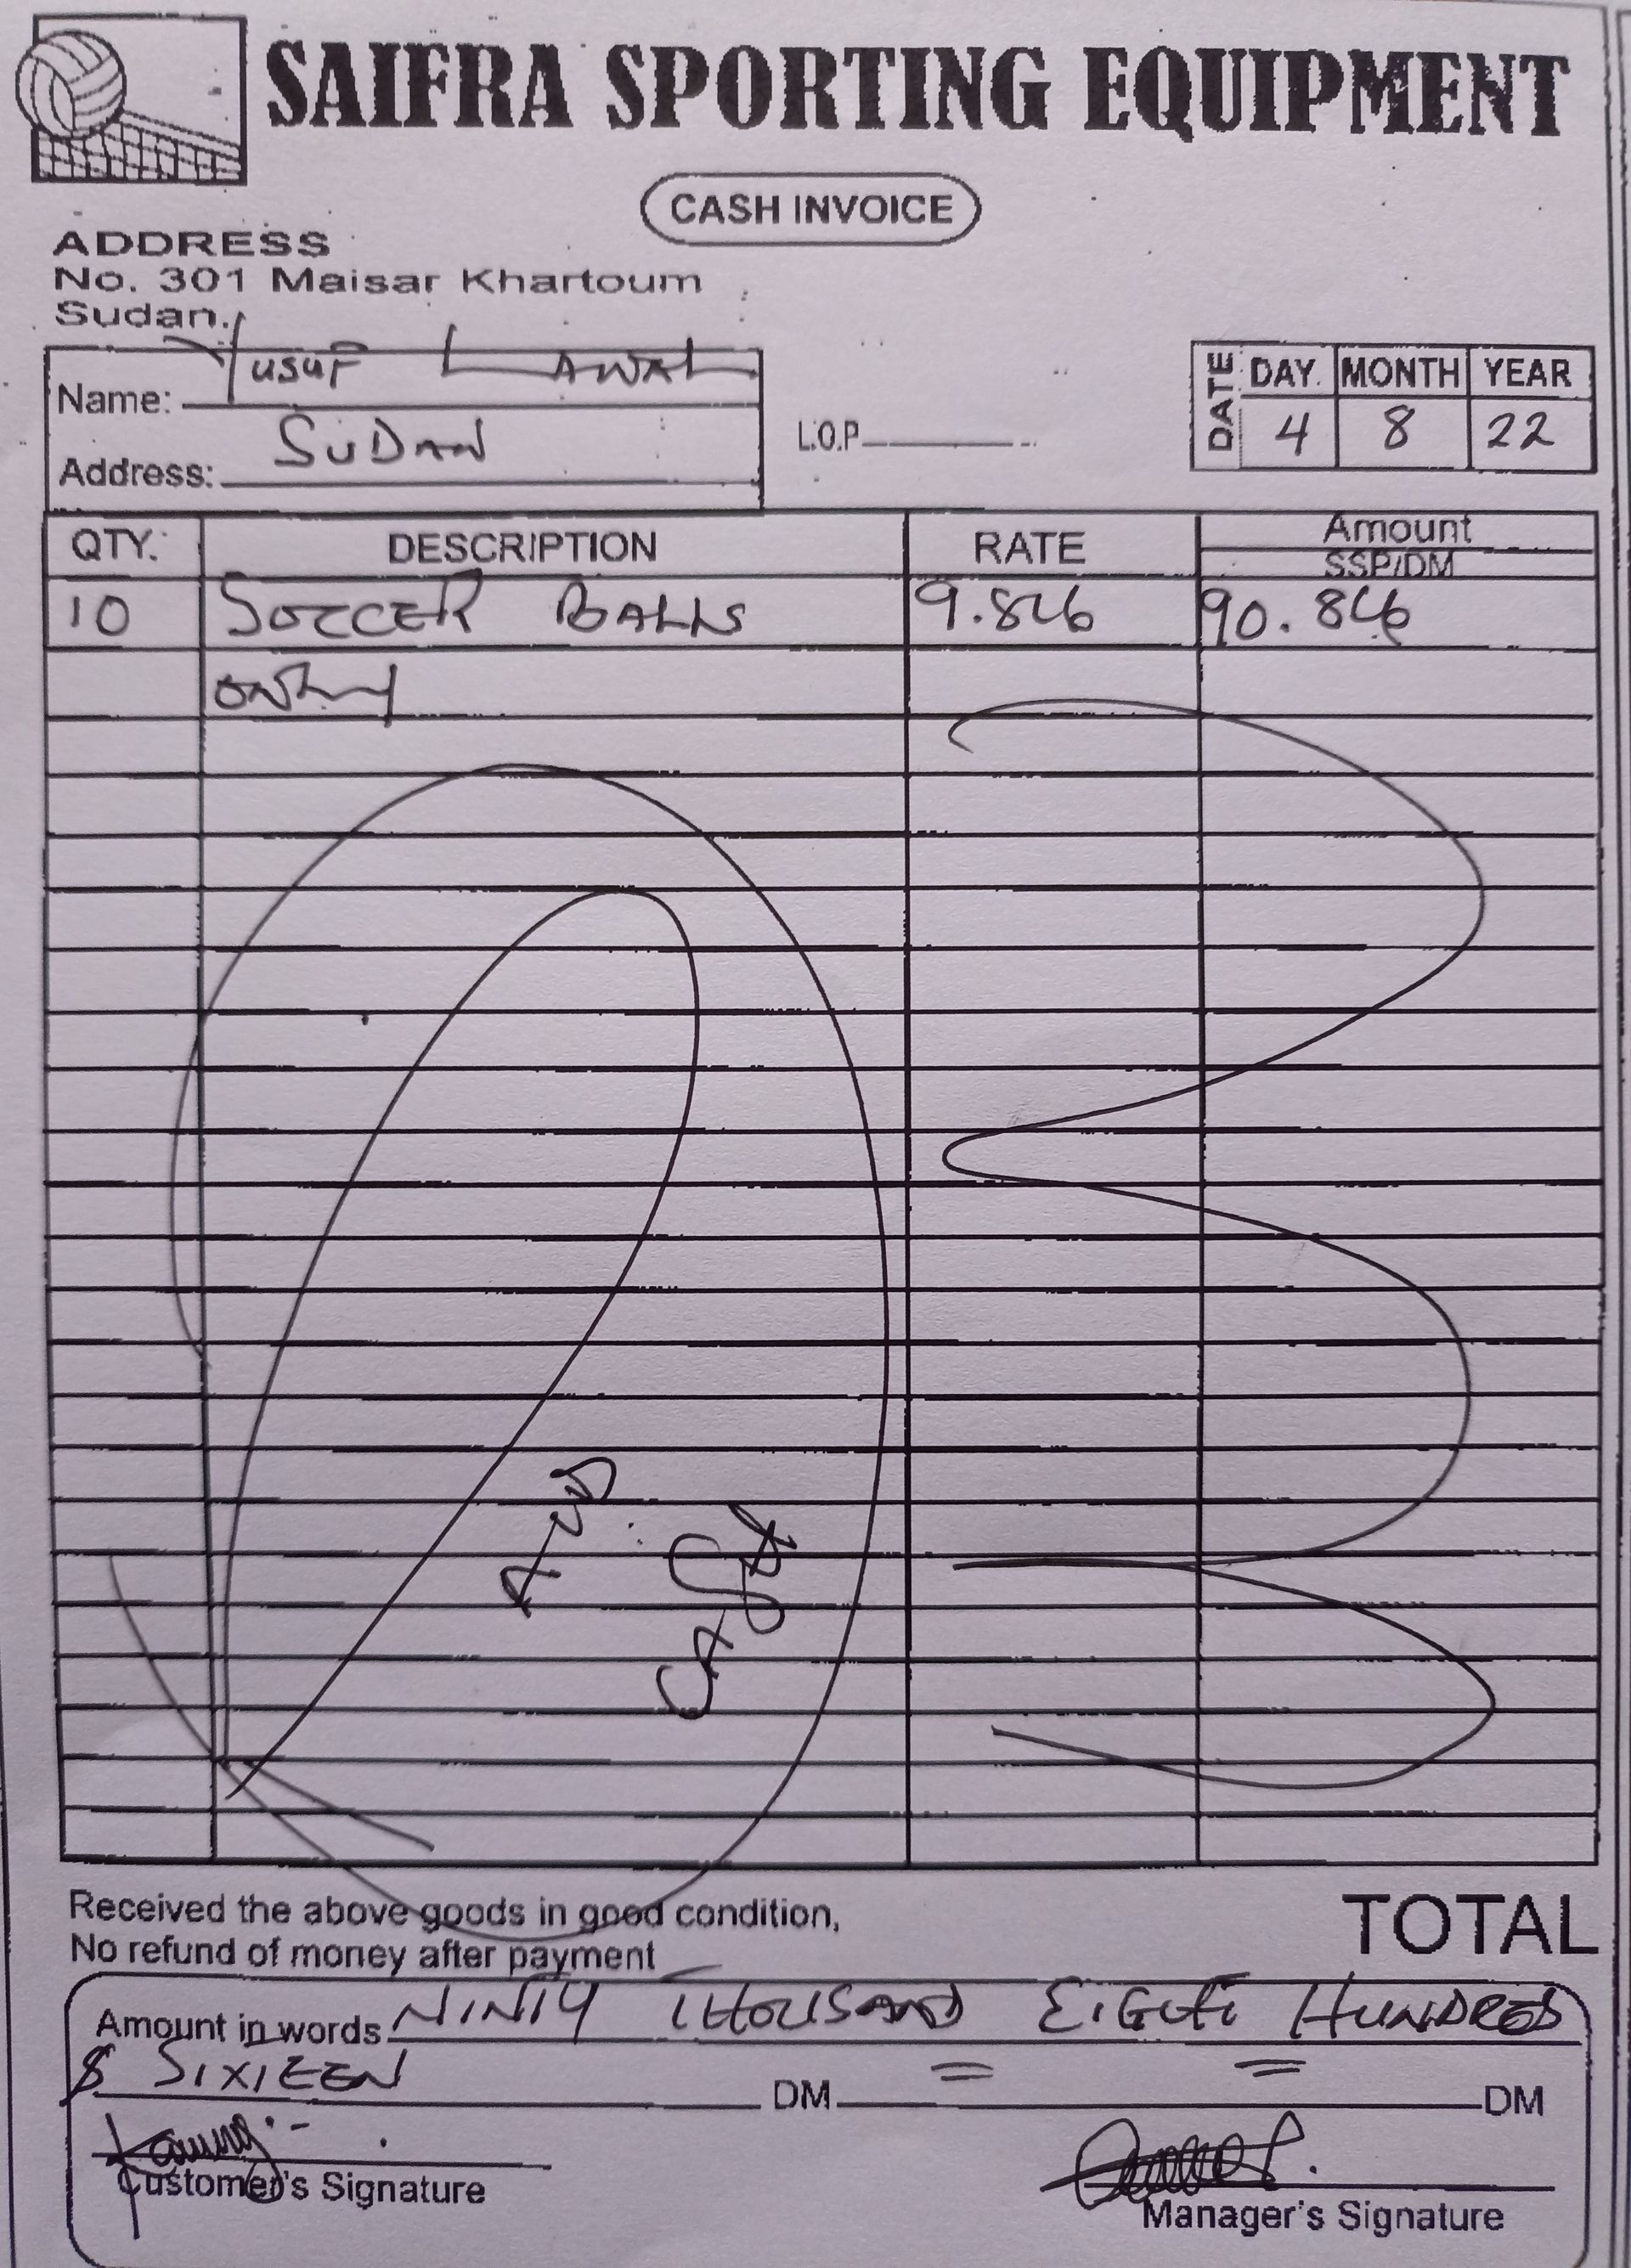 SAIFRA SPORTING EQUIPMENT
CASH INVOICE
ADDRESS
No. 301 Maisar Khartoum
Sudan.
Name: Yusuf LAWAL
Address: SUDAN
L.O.P
DATE DAY. MONTH YEAR
4 8 22
QTY. DESCRIPTION RATE Amount
SSP/DM
10 SOCCER BALLS 9.846 90.846
ONLY
CASH
Received the above goods in good condition,
No refund of money after payment
TOTAL
Amount in words NINTY THOUSAND EIGHT HUNDRED
$ SIXTEEN DM = = DM
Customer's Signature
Manager's Signature